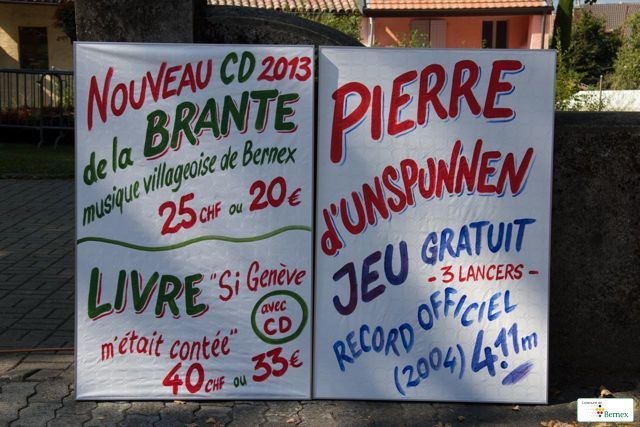 NOUVEAU CD 2013
de la BRANTE
musique villageoise de Bernex
25 CHF ou 20 €
LIVRE "Si Genève
m'était contée"
avec
CD
40 CHF ou 33 €
PIERRE
d'UNSPUNNEN
JEU GRATUIT
- 3 LANCERS -
RECORD OFFICIEL
(2004) 4.11m
Commune de
Bernex